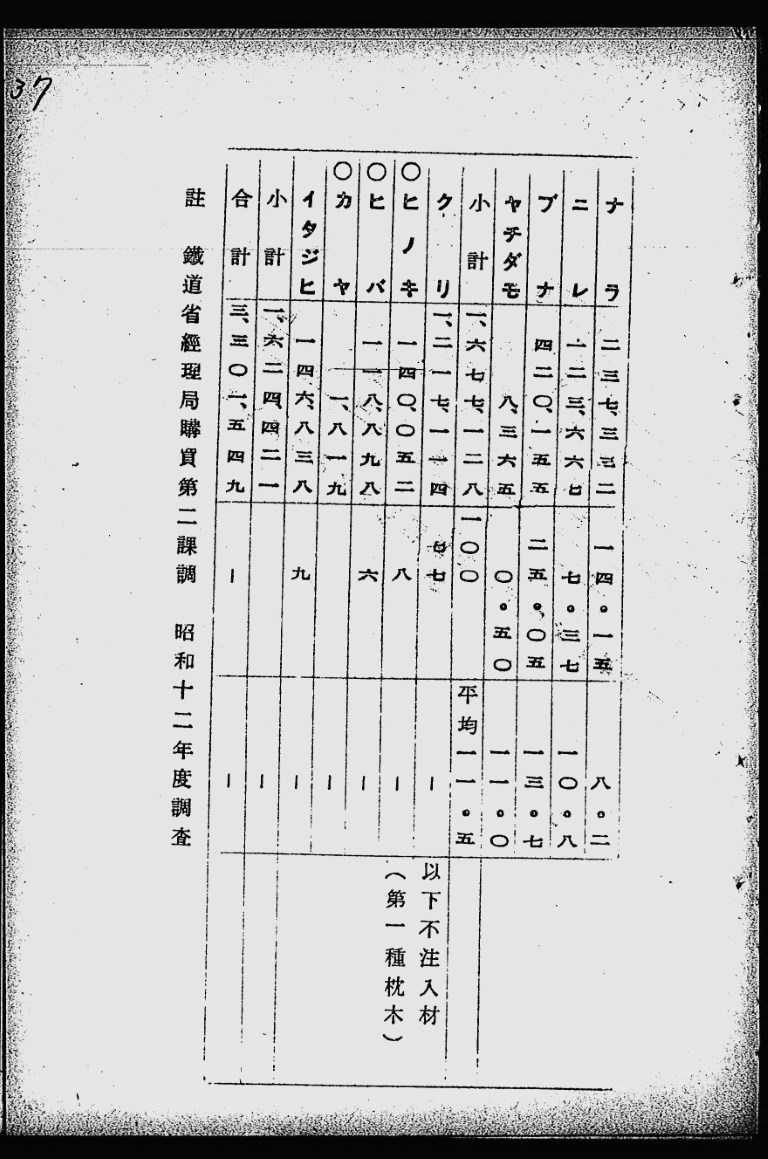 37
ナラ 二三七、三三二 一四。一五 八。二
ニレ 一二三、六六七 七。三七 一〇。八
ブナ 四二〇、一五五 二五。〇五 一三。七
ヤチダモ 八、三六五 〇。五〇 一一。〇
小計 一、六七七、一二八 一〇〇 平均一一。五
クリ 一、二一七、一一四 七七 — 以下不注入材
○ヒノキ 一四〇、〇五二 八 — (第一種枕木)
○ヒバ 一一八、八九八 六 —
○カヤ 一、八一九 —
イタジヒ 一四六、八三八 九 —
小計 一、六二四、四二一 —
合計 三、三〇一、五四九 — —
註 鐵道省經理局購買第二課調 昭和十二年度調査